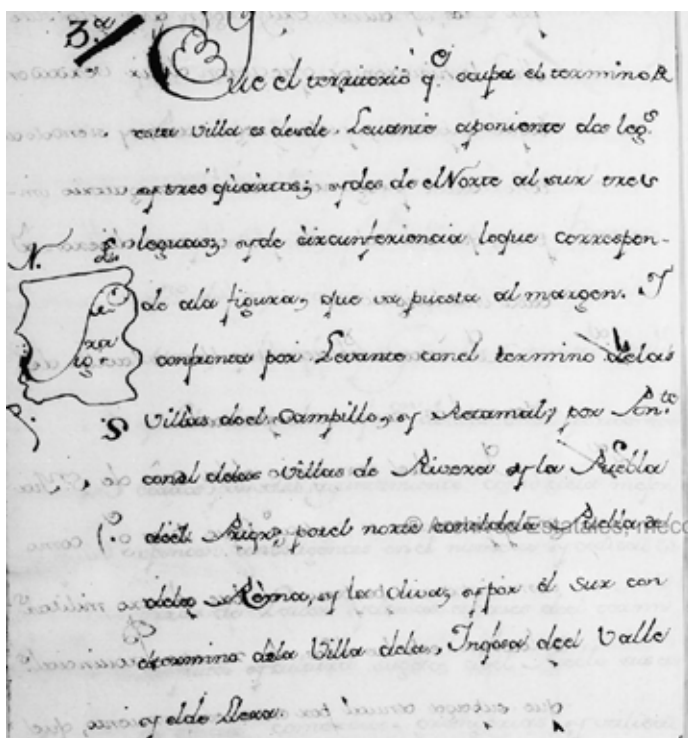 3.ª
Que el territorio q.e ocupa el termino R
esta Villa es desde Levante aponiente dos leg.s
y tres quartas; y des de el Norte al sur tres
N. L. leguas; y de circunferiencia loque correspon-
de ala figura, que va puesta al margen. Y
confronta por Levante conel termino delas
P. S Villas del Campillo, y Retamal, por Pon.te
conel delas Villas de Rivera y la Puebla
del Prior, porel norte
y la Oliva, y por el sur con
termino dela Villa dela Higuera del Valle
y elde Llera.
© Archivos Estatales, mecd